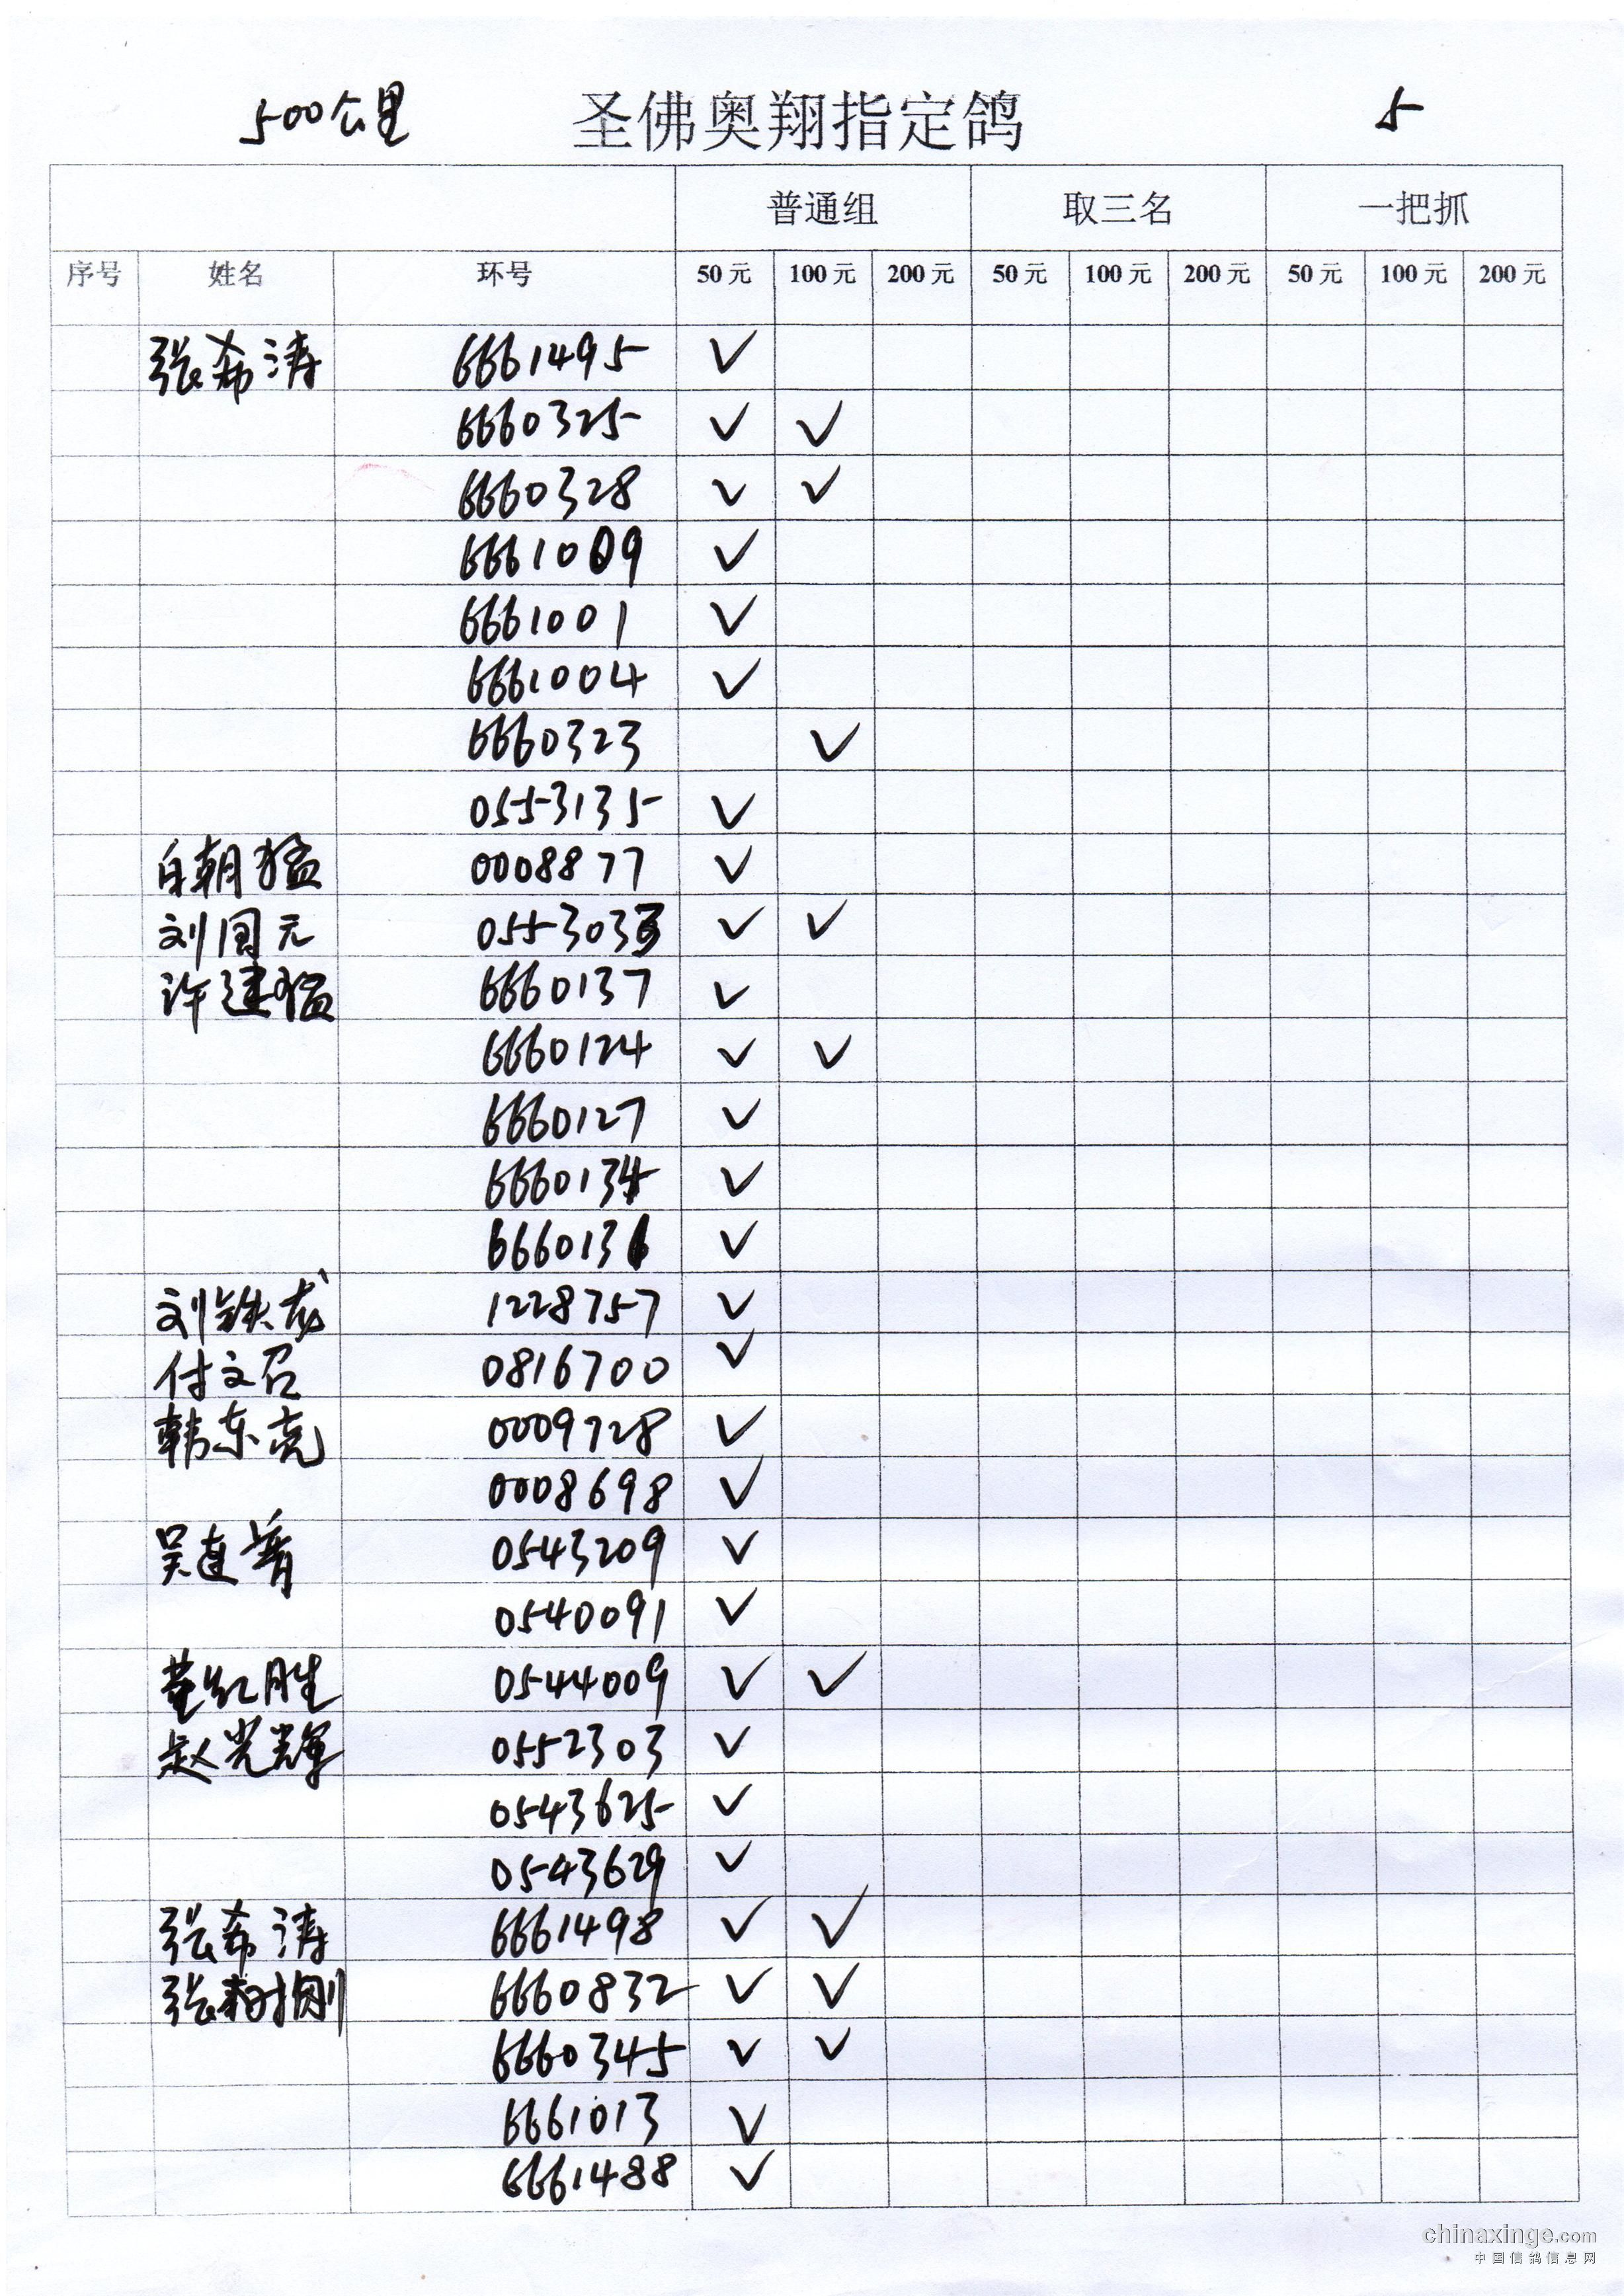 500公里 圣佛奥翔指定鸽 5
普通组 取三名 一把抓
序号 姓名 环号 50元 100元 200元 50元 100元 200元 50元 100元 200元
张希涛 6661495 ✓
6660325 ✓ ✓
6660328 ✓ ✓
6661009 ✓
6661001 ✓
6661004 ✓
6660323 ✓
0553135 ✓
白朝猛 0008877 ✓
刘国元 0553033 ✓ ✓
许建猛 6660137 ✓
6660124 ✓ ✓
6660127 ✓
6660134 ✓
6660136 ✓
刘铁龙 1228757 ✓
付文召 0816700 ✓
韩东亮 0009728 ✓
0008698 ✓
吴连 0543209 ✓
0540091 ✓
董红胜 0544009 ✓ ✓
赵光辉 0552303 ✓
0543625 ✓
0543629 ✓
张希涛 6661498 ✓ ✓
张 6660832 ✓ ✓
6660345 ✓ ✓
6661013 ✓
6661488 ✓
chinaxinge.com
中国信鸽信息网